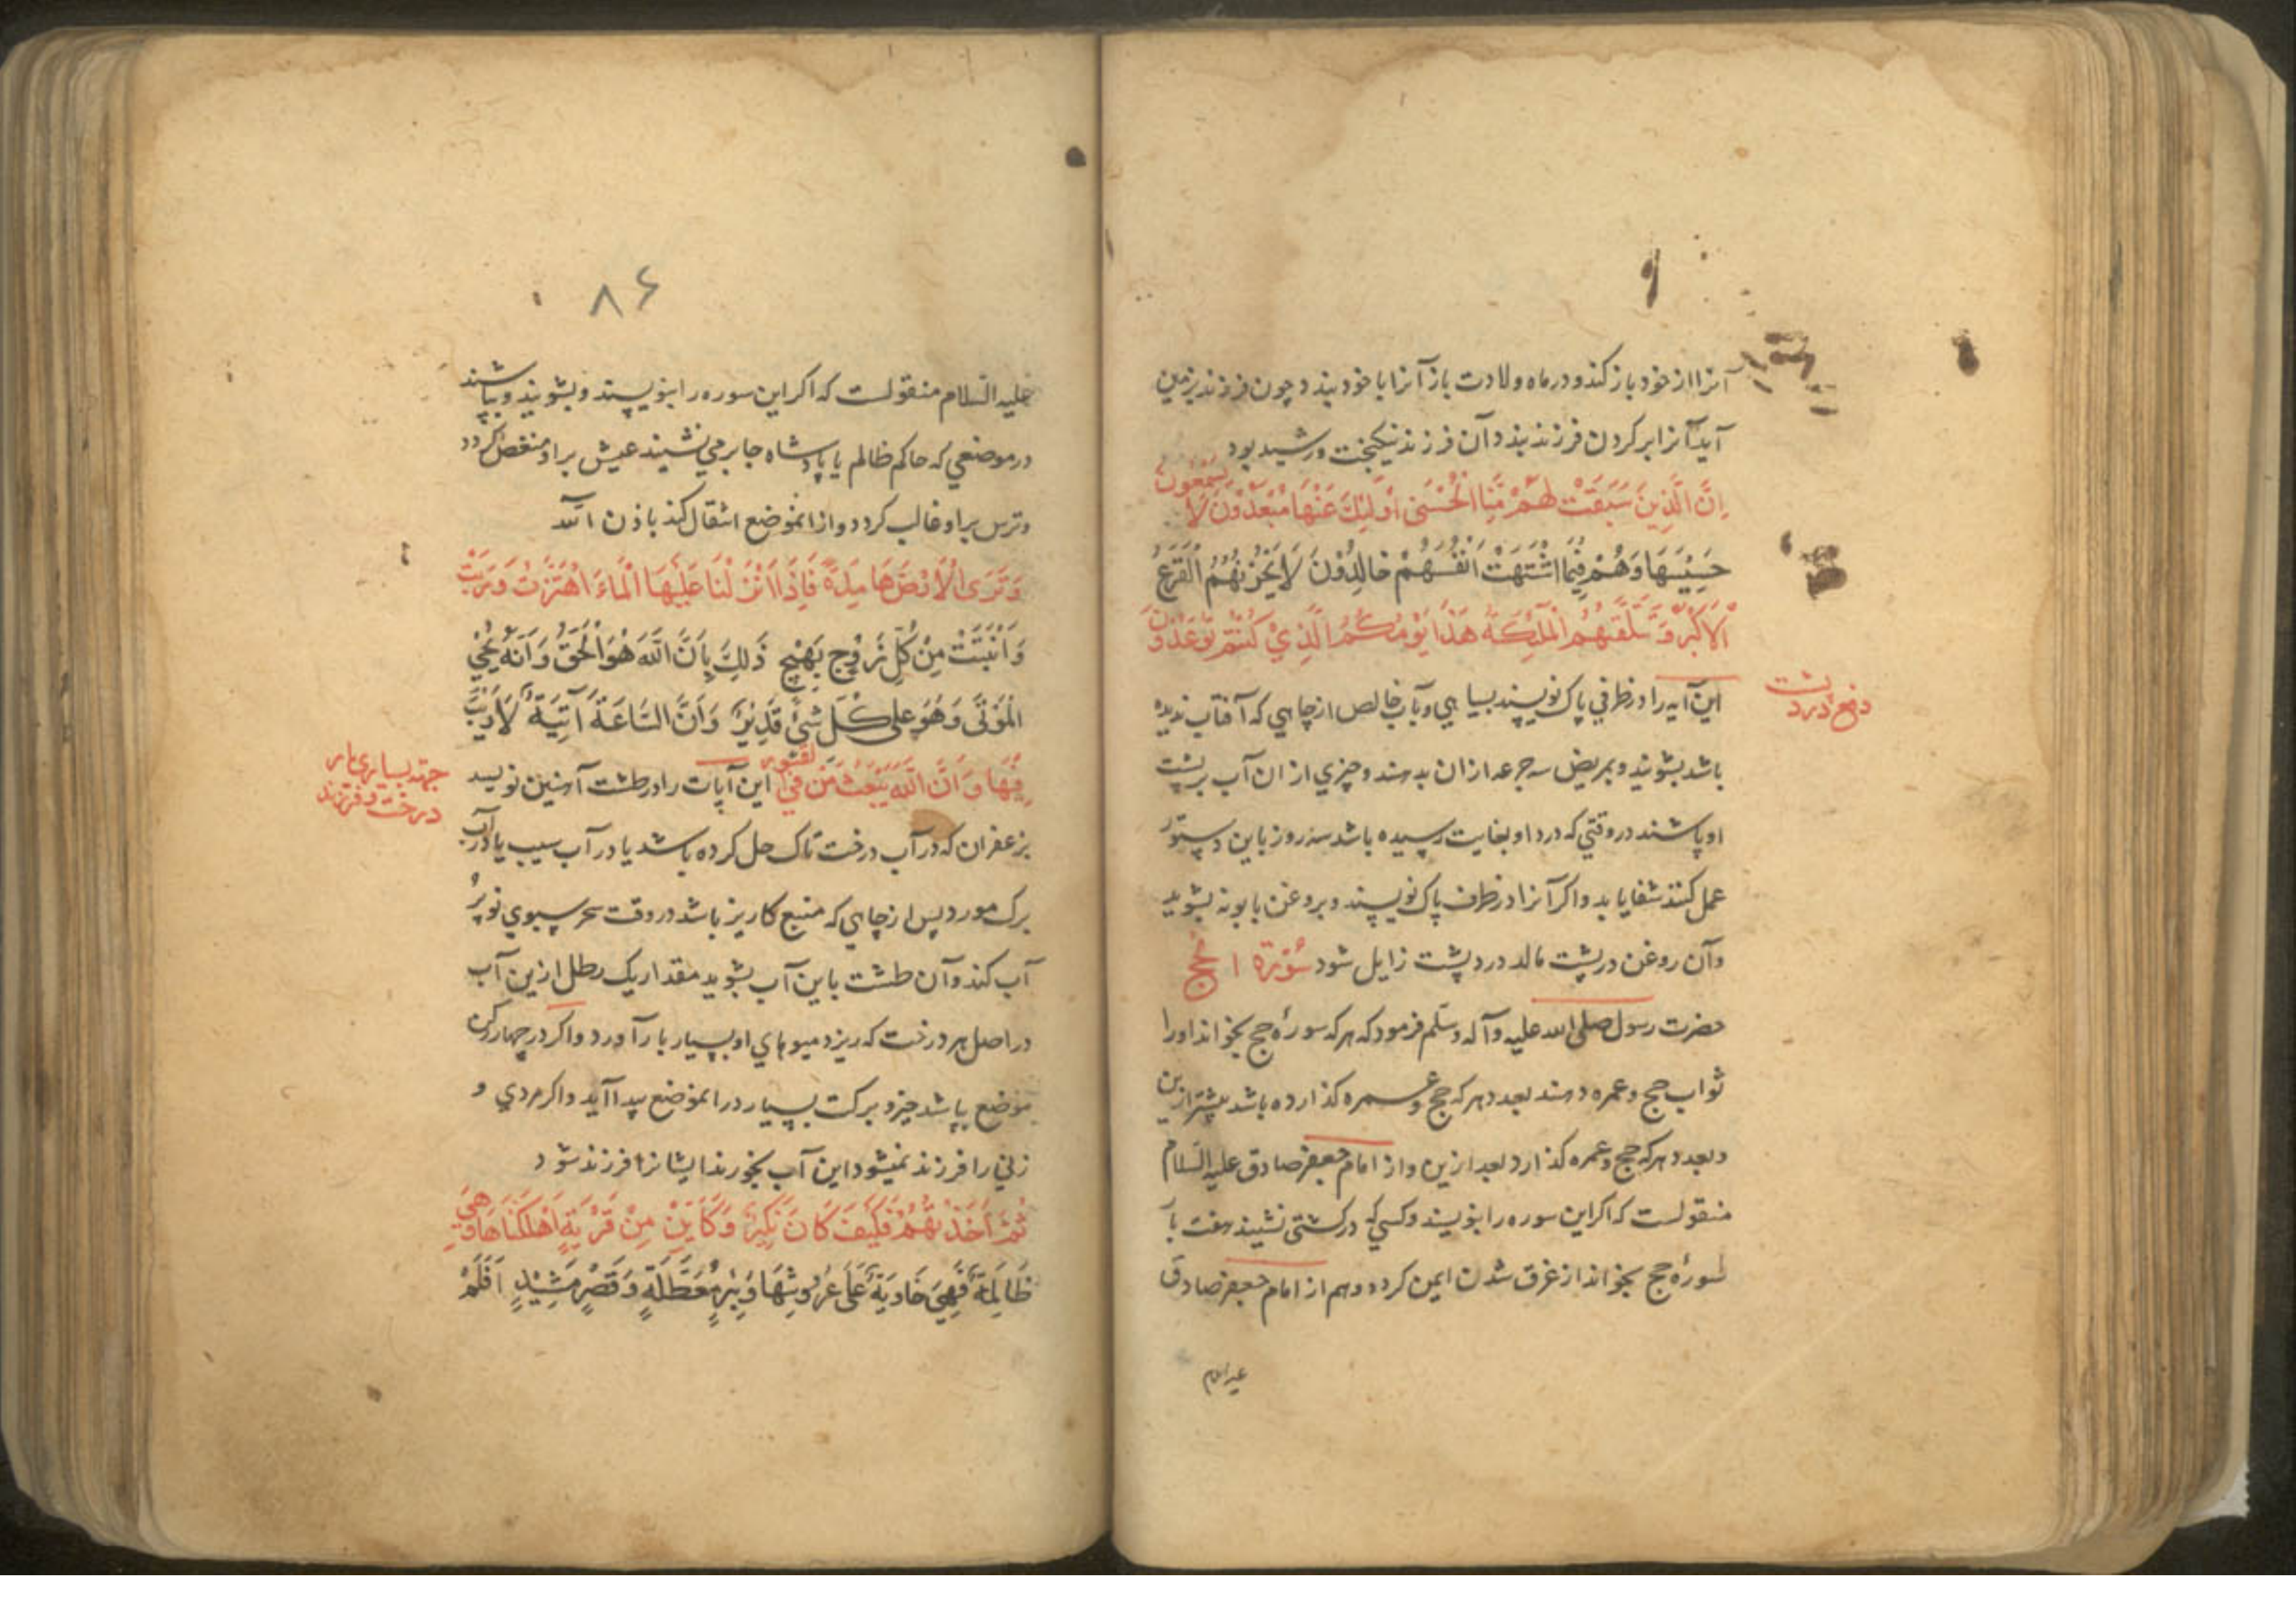 آنرا از خود باز کند و در ماه ولادت باز آنرا با خود بندد چون فرزند بزمین
آید آنرا بر کردن فرزند بندد آن فرزند نیکبخت و رشید بود
اِنَّ الَّذِینَ سَبَقَتْ لَهُمْ مِّنَّا الْحُسْنٰی اُولٰئِكَ عَنْهَا مُبْعَدُونَ لَا یَسْمَعُونَ
حَسِیْسَهَا وَهُمْ فِیْمَا اشْتَهَتْ اَنْفُسُهُمْ خَالِدُوْنَ لَا یَحْزُنُهُمُ الْفَزَعُ
الْاَكْبَرُ وَتَتَلَقّٰهُمُ الْمَلٰٓئِكَةُ هٰذَا یَوْمُكُمُ الَّذِیْ كُنْتُمْ تُوْعَدُوْنَ
دفع درد پشت
این آیه را در ظرفی پاک نویسند بسیاهی و بآب خالص از چاهی که آفتاب ندیده
باشد بشویند و بمریض سه جرعه ازان بدهند و چیزی از ان آب بر پشت
او پاشند در وقتی که درد او بغایت رسیده باشد سه روز باین دستور
عمل کنند شفا یابد و اکر آنرا در ظرف پاک نویسند و بروغن بابونه بشویند
و آن روغن در پشت مالد درد پشت زایل شود سُوْرَة الحج
حضرت رسول صلی الله علیه و آله و سلم فرمود که هر که سورهٔ حج بخواند او را
ثواب حج و عمره دهند بعدد هر که حج و عمره کذارده باشد پیشتر ازین
و بعدد هر که حج و عمره کذارد بعد ازین و از امام جعفر صادق علیه السلام
منقولست که اکر این سوره را بنویسند و کسی که در کشتی نشیند هفت بار
سورهٔ حج بخواند از غرق شدن ایمن کردد و هم از امام جعفر صادق
علیه السلام
۸۶
علیه السلام منقولست که اکر این سوره را بنویسند و بشویند و بپاشند
در موضعی که حاکم ظالم یا پادشاه جابر می نشیند عیش بر او منغص کردد
و ترس بر او غالب کردد و از انموضع انتقال کند باذن الله
وَتَرَی الْاَرْضَ هَامِدَةً فَاِذَا اَنْزَلْنَا عَلَیْهَا الْمَاءَ اهْتَزَّتْ وَرَبَتْ
وَاَنْبَتَتْ مِنْ كُلِّ زَوْجٍ بَهِیْجٍ ذٰلِكَ بِاَنَّ اللّٰهَ هُوَ الْحَقُّ وَاَنَّهُ یُحْیِ
الْمَوْتٰی وَهُوَ عَلٰی كُلِّ شَیْءٍ قَدِیْرٌ وَاَنَّ السَّاعَةَ اٰتِیَةٌ لَا رَیْبَ
فِیْهَا وَاَنَّ اللّٰهَ یَبْعَثُ مَنْ فِی القبور این آیات را در طشت آهنین نویسد
جهة بسیاری بار
درخت و فرزند
بزعفران که در آب درخت تاک حل کرده باشد یا در آب سیب یا در آب
برک مورد پس از چاهی که منبع کاریز باشد در وقت سحر سبوی نو پر
آب کند و آن طشت باین آب بشوید مقدار یک رطل ازین آب
در اصل هر درخت که ریزد میوهای او بسیار بار آورد و اکر در چهار رکن
موضع بپاشد خیر و برکت بسیار در انموضع پیدا آید و اکر مردی و
زنی را فرزند نمیشود این آب بخورند ایشانرا فرزند شود
ثُمَّ اَخَذْتُهُمْ فَكَیْفَ كَانَ نَكِیْرِ وَكَاَیِّنْ مِنْ قَرْیَةٍ اَهْلَكْنَاهَا وَهِیَ
ظَالِمَةٌ فَهِیَ خَاوِیَةٌ عَلٰی عُرُوْشِهَا وَبِئْرٍ مُعَطَّلَةٍ وَقَصْرٍ مَشِیْدٍ اَفَلَمْ